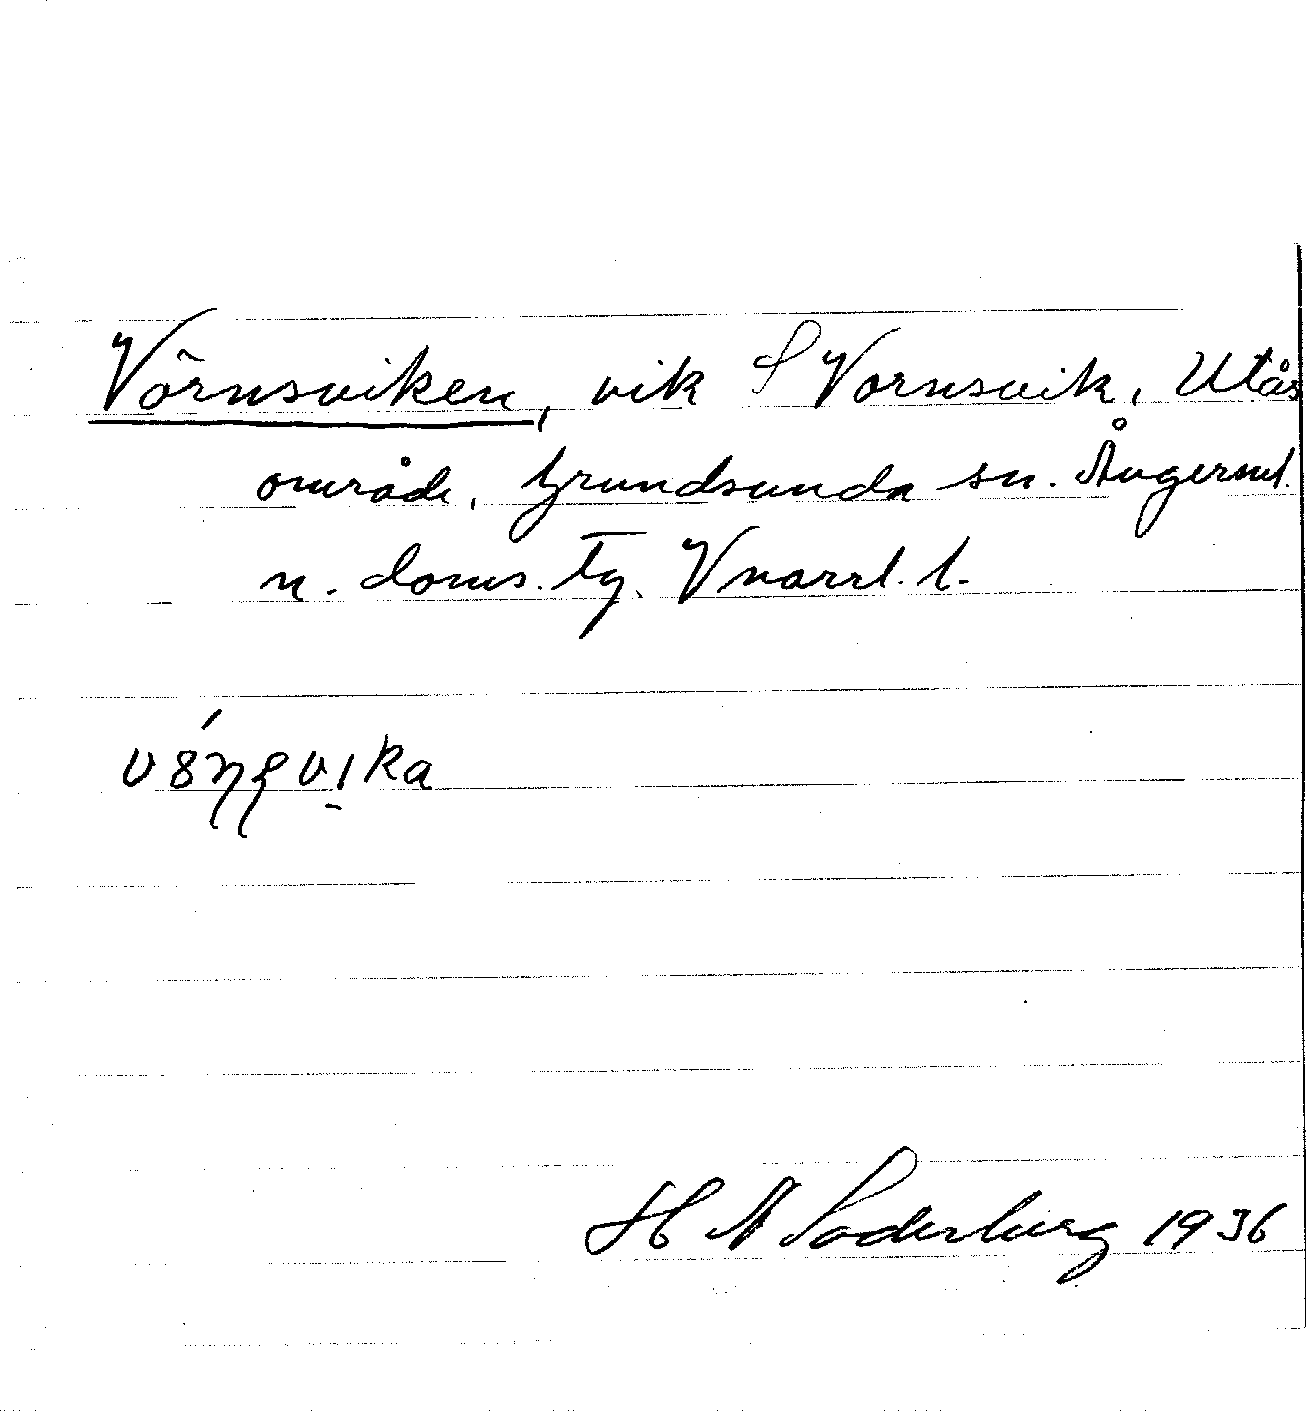 Vörnsviken, vik S Vörnsvik, Utås
område, Grundsunda sn. Ångerml.
n. doms. Tg. Vnorrl. l.
H N Söderberg 1936